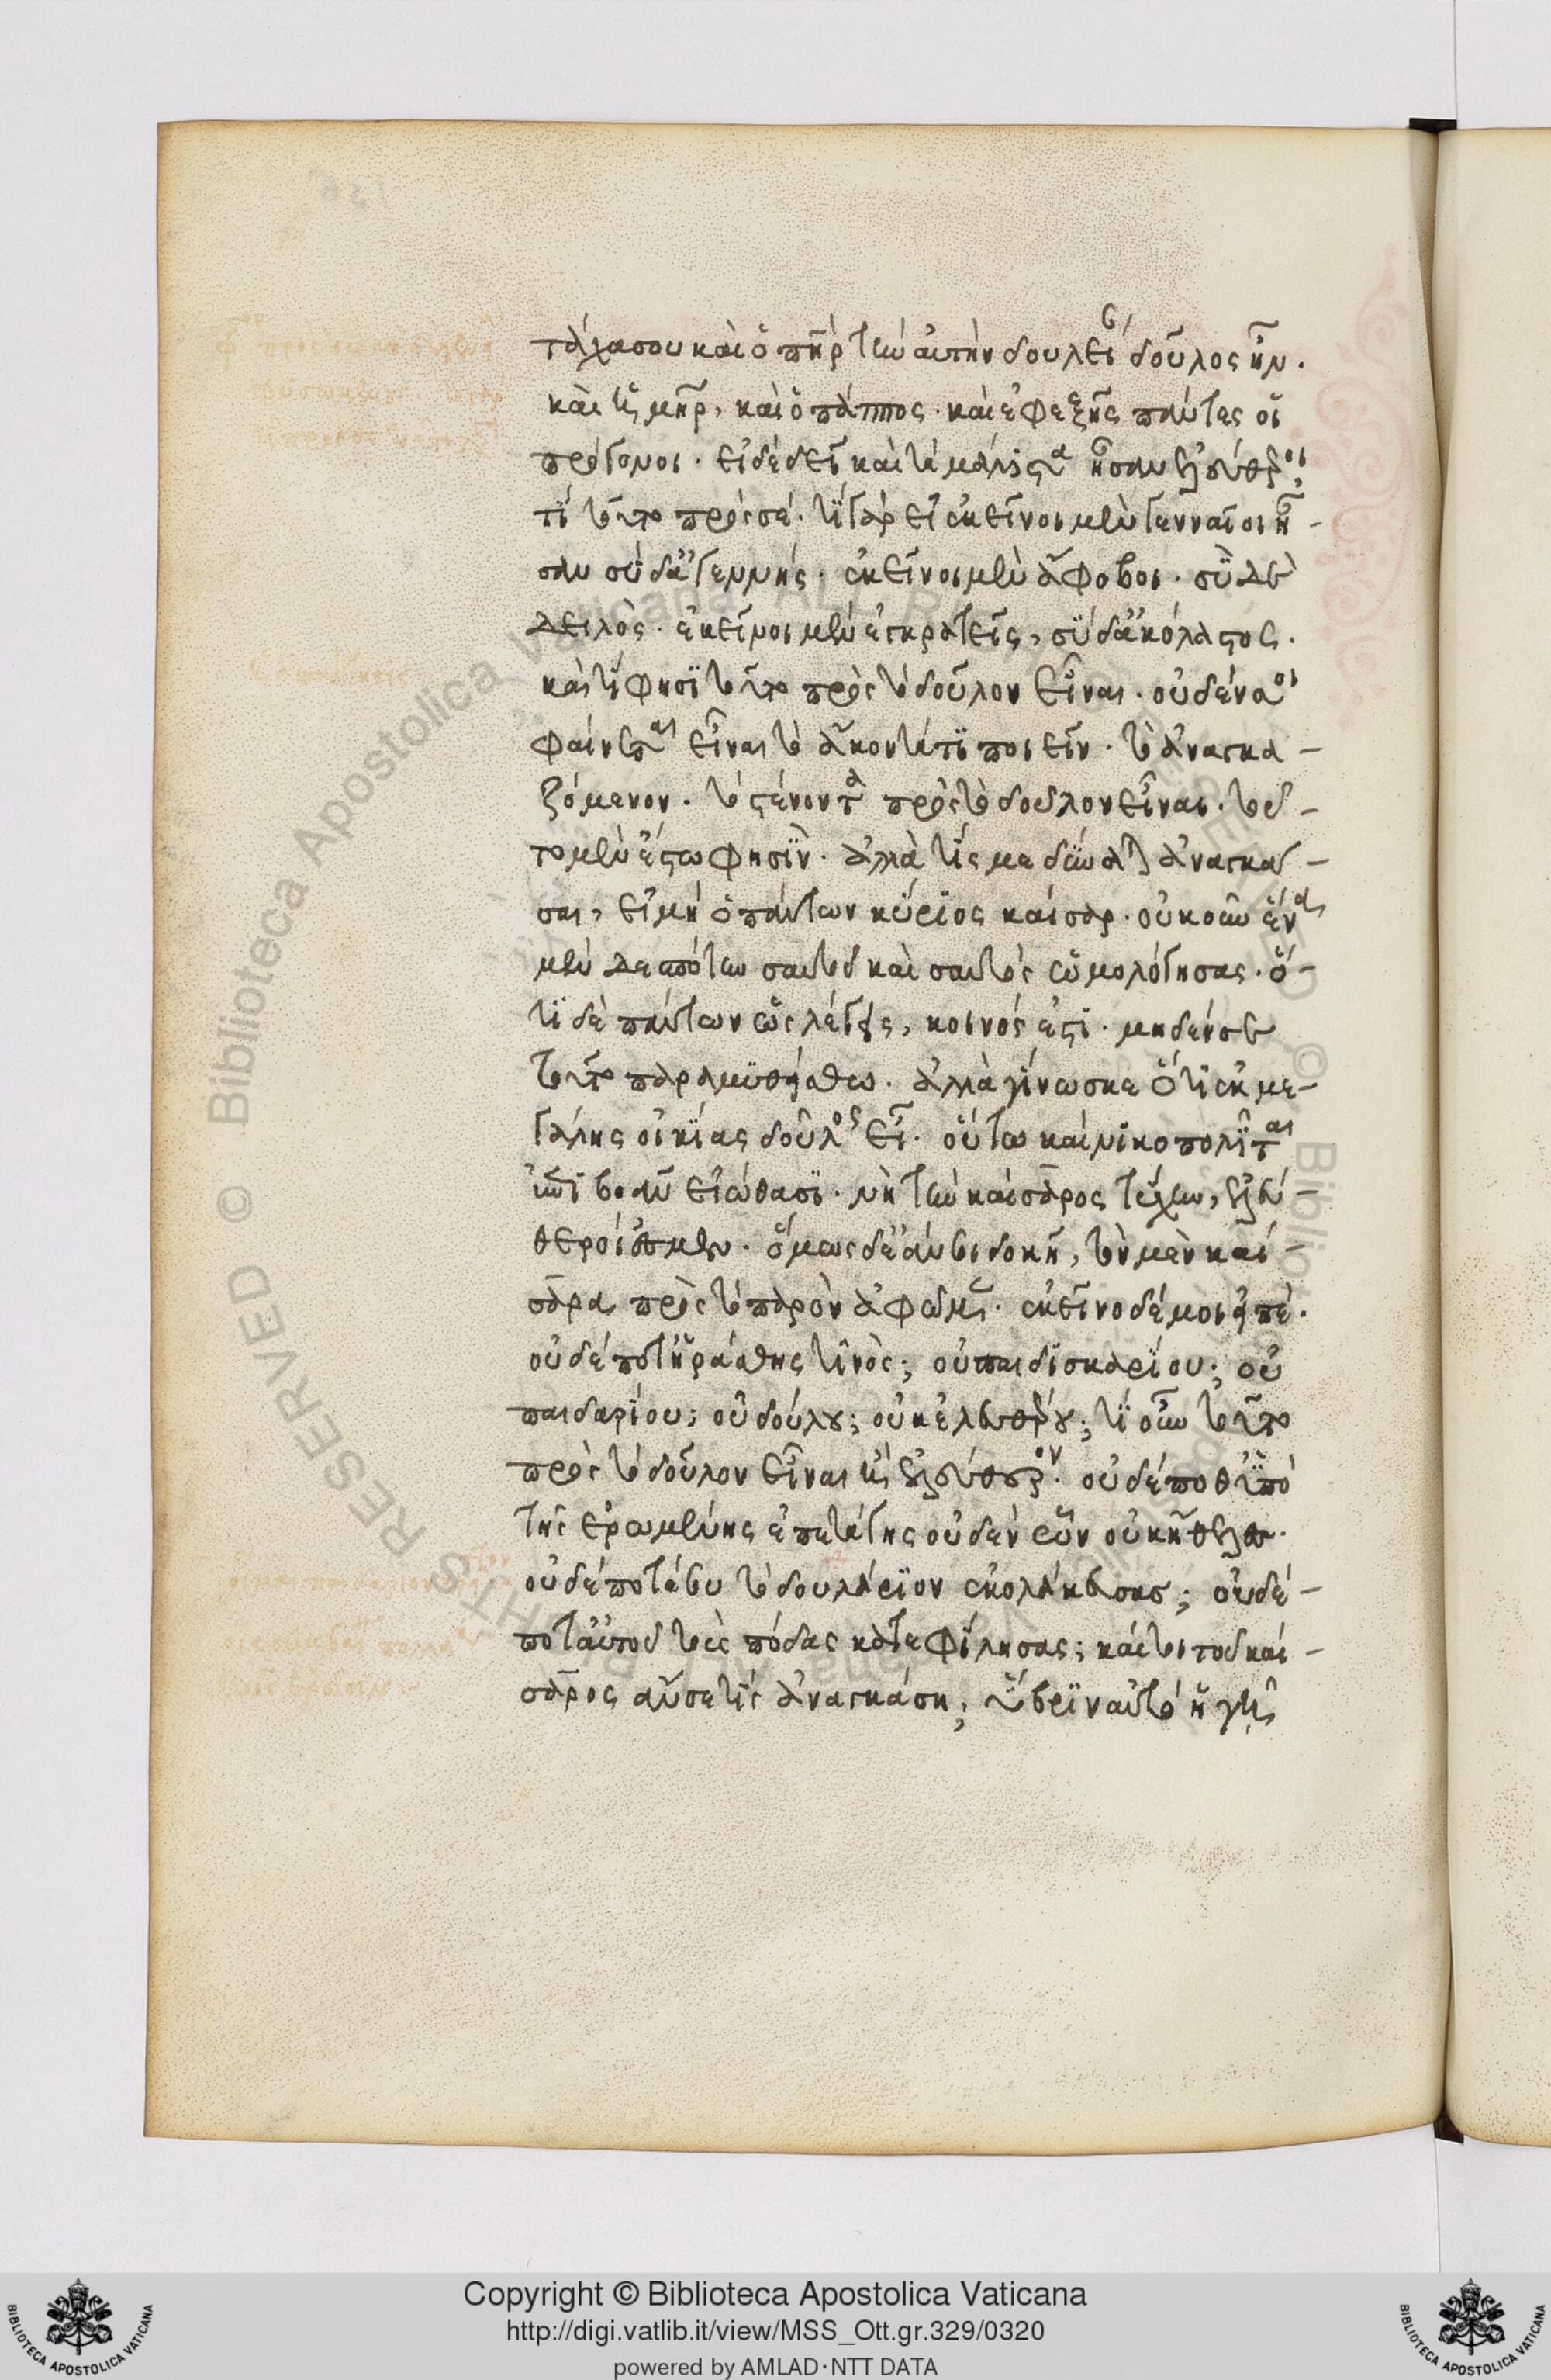 τάχα σου καὶ ὁ πὴρ τὴν αὐτὴν δουλεί δοῦλος ἦν.
καὶ ἡ μὴρ, καὶ ὁ πάππος. καὶ ἐφεξῆς πάντες οἱ
πρόγονοι. εἰ δὲ δεῖ καὶ τὰ μάλιστα ἦσαν ἐλεύθεροι,
τί τοῦτο πρὸς σέ. τί γὰρ εἰ ἐκεῖνοι μὲν γενναῖοι ἦ-
σαν σὺ δ' ἀγεννής. ἐκεῖνοι μὲν ἄφοβοι. σὺ δὲ
δειλὸς. ἐκεῖνοι μὲν ἐγκρατεῖς, σὺ δ' ἀκόλαστος.
καὶ τί φησὶ τοῦτο πρὸς τὸ δοῦλον εἶναι. οὐδέν σοι
φαίνεται εἶναι τὸ ἄκοντά τι ποιεῖν. τὸ ἀναγκα-
ζόμενον. τὸ στένοντα πρὸς τὸ δοῦλον εἶναι. τοῦ-
το μὲν ἔστω φησὶν. ἀλλὰ τίς με δύναται ἀναγκά-
σαι, εἰ μὴ ὁ πάντων κύριος καίσαρ. οὐκοῦν ἕνα
μὲν δεσπότην σαυτοῦ καὶ σαυτὸς ὡμολόγησας. ὅ-
τι δὲ πάντων ὡς λέγεις, κοινός ἐστι. μηδέν σε
τοῦτο παραμυθείσθω. ἀλλὰ γίνωσκε ὅτι ἐκ με-
γάλης οἰκίας δοῦλος εἶ. οὕτω καὶ νικοπολῖται
ἐπιβοᾶν εἰώθασι. νὴ τὴν καίσαρος τύχην, ἐλεύ-
θεροί ἐσμεν. ὅμως δ' ἐάν σοι δοκῇ, τὸν μὲν καί-
σαρα πρὸς τὸ παρὸν ἀφῶμεν. ἐκεῖνο δέ μοι εἰπέ.
οὐδέποτ' ἠράσθης τινὸς; οὐ παιδισκαρίου; οὐ
παιδαρίου; οὐ δούλου; οὐκ ἐλευθέρου; τί οὖν τοῦτο
πρὸς τὸ δοῦλον εἶναι ἢ ἐλεύθερον. οὐδέποθ' ὑπὸ
τῆς ἐρωμένης ἐπετάγης οὐδὲν ὧν οὐκ ἤθελες.
οὐδέποτέ σου τὸ δουλάριον ἐκολάκευσας; οὐδέ-
ποτ' αὐτοῦ τοὺς πόδας κατεφίλησας; καίτοι τοῦ καί-
σαρος ἄν σε τίς ἀναγκάσῃ, ὕβριν αὐτὸ ἡγῇ
Copyright © Biblioteca Apostolica Vaticana
http://digi.vatlib.it/view/MSS_Ott.gr.329/0320
powered by AMLAD·NTT DATA